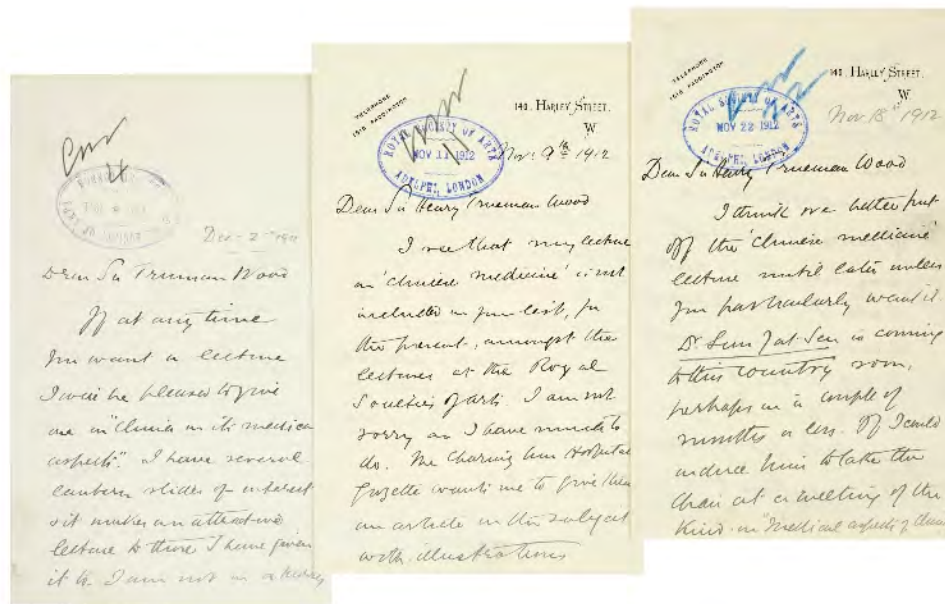 Dec. 2nd 1911
Dear Sir Trueman Wood
If at any time
you want a lecture
I will be pleased to give
one on "China in its medical
aspects". I have several
lantern slides of interest
& it makes an attractive
lecture to those I have given
it to. I am not in a
TELEPHONE
1616 PADDINGTON
140, HARLEY STREET.
W
ROYAL SOCIETY OF ARTS
NOV 11 1912
ADELPHI, LONDON
Nov. 9th 1912
Dear Sir Henry Trueman Wood
I see that my lecture
on 'Chinese medicine' is not
included in your list, for
the present, amongst the
lectures at the Royal
Societies of Arts. I am not
sorry as I have much to
do. The Charing Cross Hospital
Gazette wants me to give them
an article on the subject
with illustrations
TELEPHONE
1616 PADDINGTON
140, HARLEY STREET.
W
ROYAL SOCIETY OF ARTS
NOV 22 1912
ADELPHI, LONDON
Nov. 18th 1912
Dear Sir Henry Trueman Wood
I think we better put
off the 'Chinese medicine'
lecture until later unless
you particularly want it
Dr. Sun Yat Sen is coming
to this country soon,
perhaps in a couple of
months or less. If I could
induce him to take the
chair at a meeting of the
kind on "Medical aspects of China